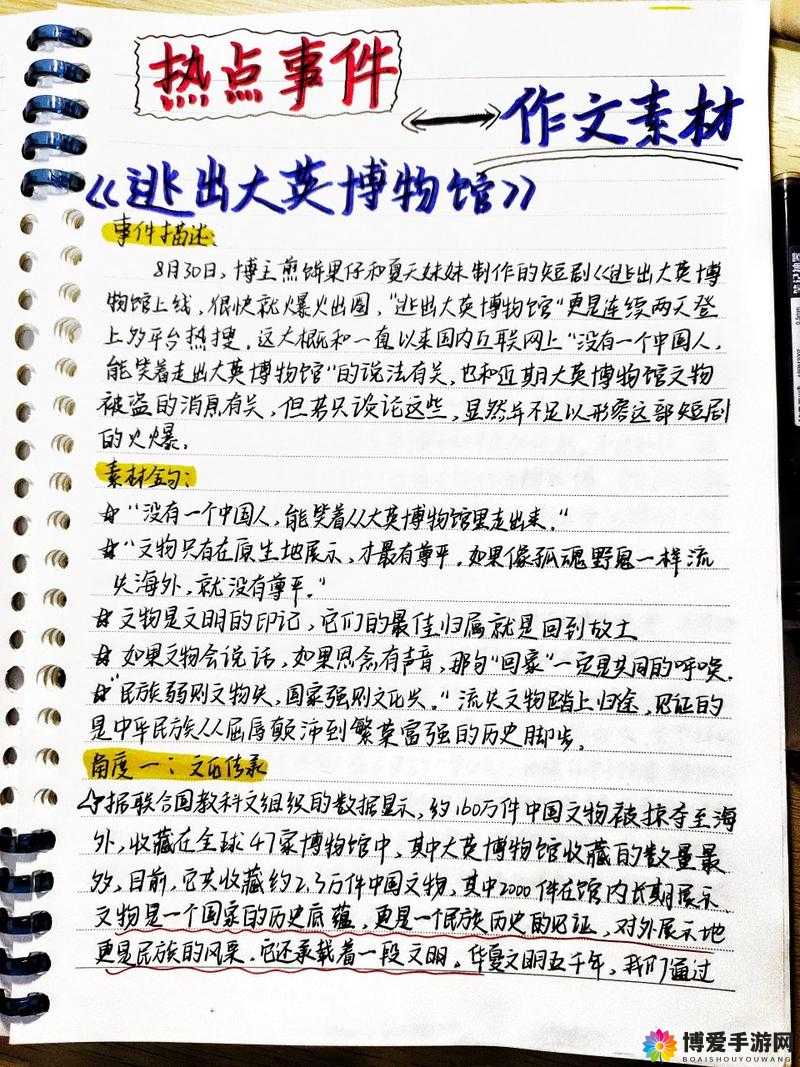 热点事件
作文素材
《逃出大英博物馆》
事件描述：
8月30日，博主煎饼果仔和夏天妹妹制作的短剧《逃出大英博
物馆上线，很快就爆火出圈，“逃出大英博物馆”更是连续两天登
上多平台热搜。这大概和一直以来国内互联网上“没有一个中国人，
能笑着走出大英博物馆”的说法有关，也和近期大英博物馆文物
被盗的消息有关，但若只谈论这些，显然并不足以形容这部短剧
的火爆。
素材金句：
☆“没有一个中国人，能笑着从大英博物馆里走出来。”
☆“文物只有在原生地展示，才最有尊严。如果像孤魂野鬼一样流
失海外，就没有尊严。”
☆文物是文明的印记，它们的最佳归属就是回到故土
☆如果文物会说话，如果思念有声音，那句“回家”一定是共同的呼唤。
☆“民族弱则文物失，国家强则文化兴。”流失文物踏上归途，见证的
是中华民族从屈辱颠沛到繁荣富强的历史脚步。
角度一：文化传承
据联合国教科文组织的数据显示，约160万件中国文物被掠夺至海
外，收藏在全球47家博物馆中，其中大英博物馆收藏的数量最
多，目前，它共收藏约2.3万件中国文物，其中2000件在馆内长期展示
文物是一个国家的历史底蕴，更是一个民族历史的见证，对外展示地
更是民族的风采。它还承载着一段文明。华夏文明五千年，我们通过
博爱手游网
BOAISHOUYOUWANG